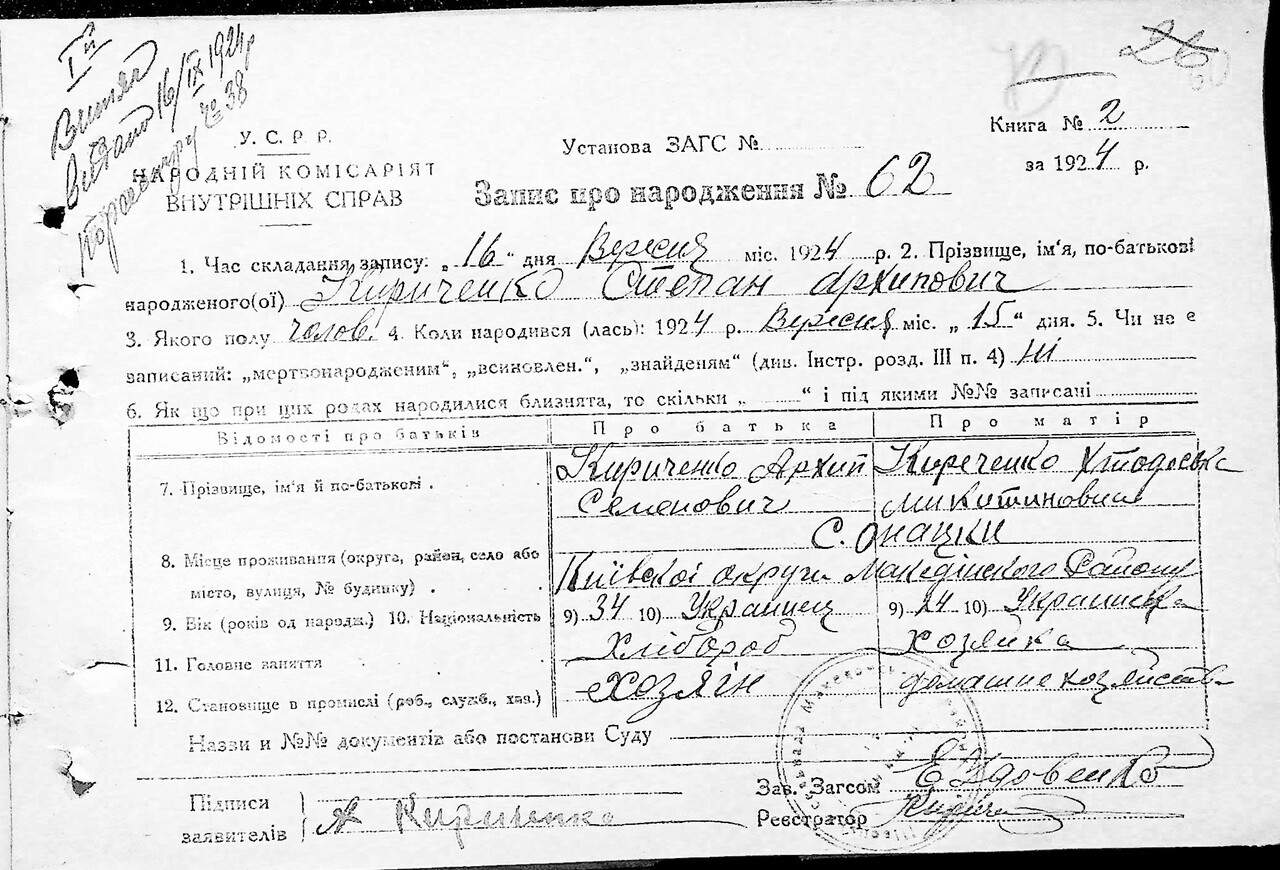 Iй
Витяг
видано 16/IX 1924 р
№ 38
26
60
У. С. Р. Р.
НАРОДНІЙ КОМІСАРІЯТ
ВНУТРІШНІХ СПРАВ
Установа ЗАГС №
Книга № 2
за 1924 р.
Запис про народження № 62
1. Час складання запису: „16“ дня Вересня міс. 1924 р. 2. Прізвище, ім'я, по-батькові
народженого(ої) Кириченко Степан Архипович
3. Якого полу чолов. 4. Коли народився (лась): 1924 р. Вересня міс. „15“ дня. 5. Чи не є
записаний: „мертвонародженим“, „всиновлен.“, „знайденям“ (див. Інстр. розд. III п. 4) Ні
6. Як що при цих родах народилися близнята, то скільки „ “ і під якими №№ записані
Відомості про батьків Про батька Про матір
7. Прізвище, ім'я й по-батькові . Кириченко Архип Киреченко
Семенович Микитиновна
С. Онацки
8. Місце проживання (округа, район, село або
місто, вулиця, № будинку) . Київскої округи Македінского Району
9. Вік (років од народж.) 10. Національність 9) 34 10) Украинец 9) 24 10) Украинька
11. Головне заняття Хлібороб хозяйка
12. Становище в промислі (роб., служб., хаз.) Хозяін домашне хозяйство
Назви и №№ документів або постанови Суду
Підписи
заявителів А Кириченко
Зав. Загсом Є Вдовенко
Реєстратор